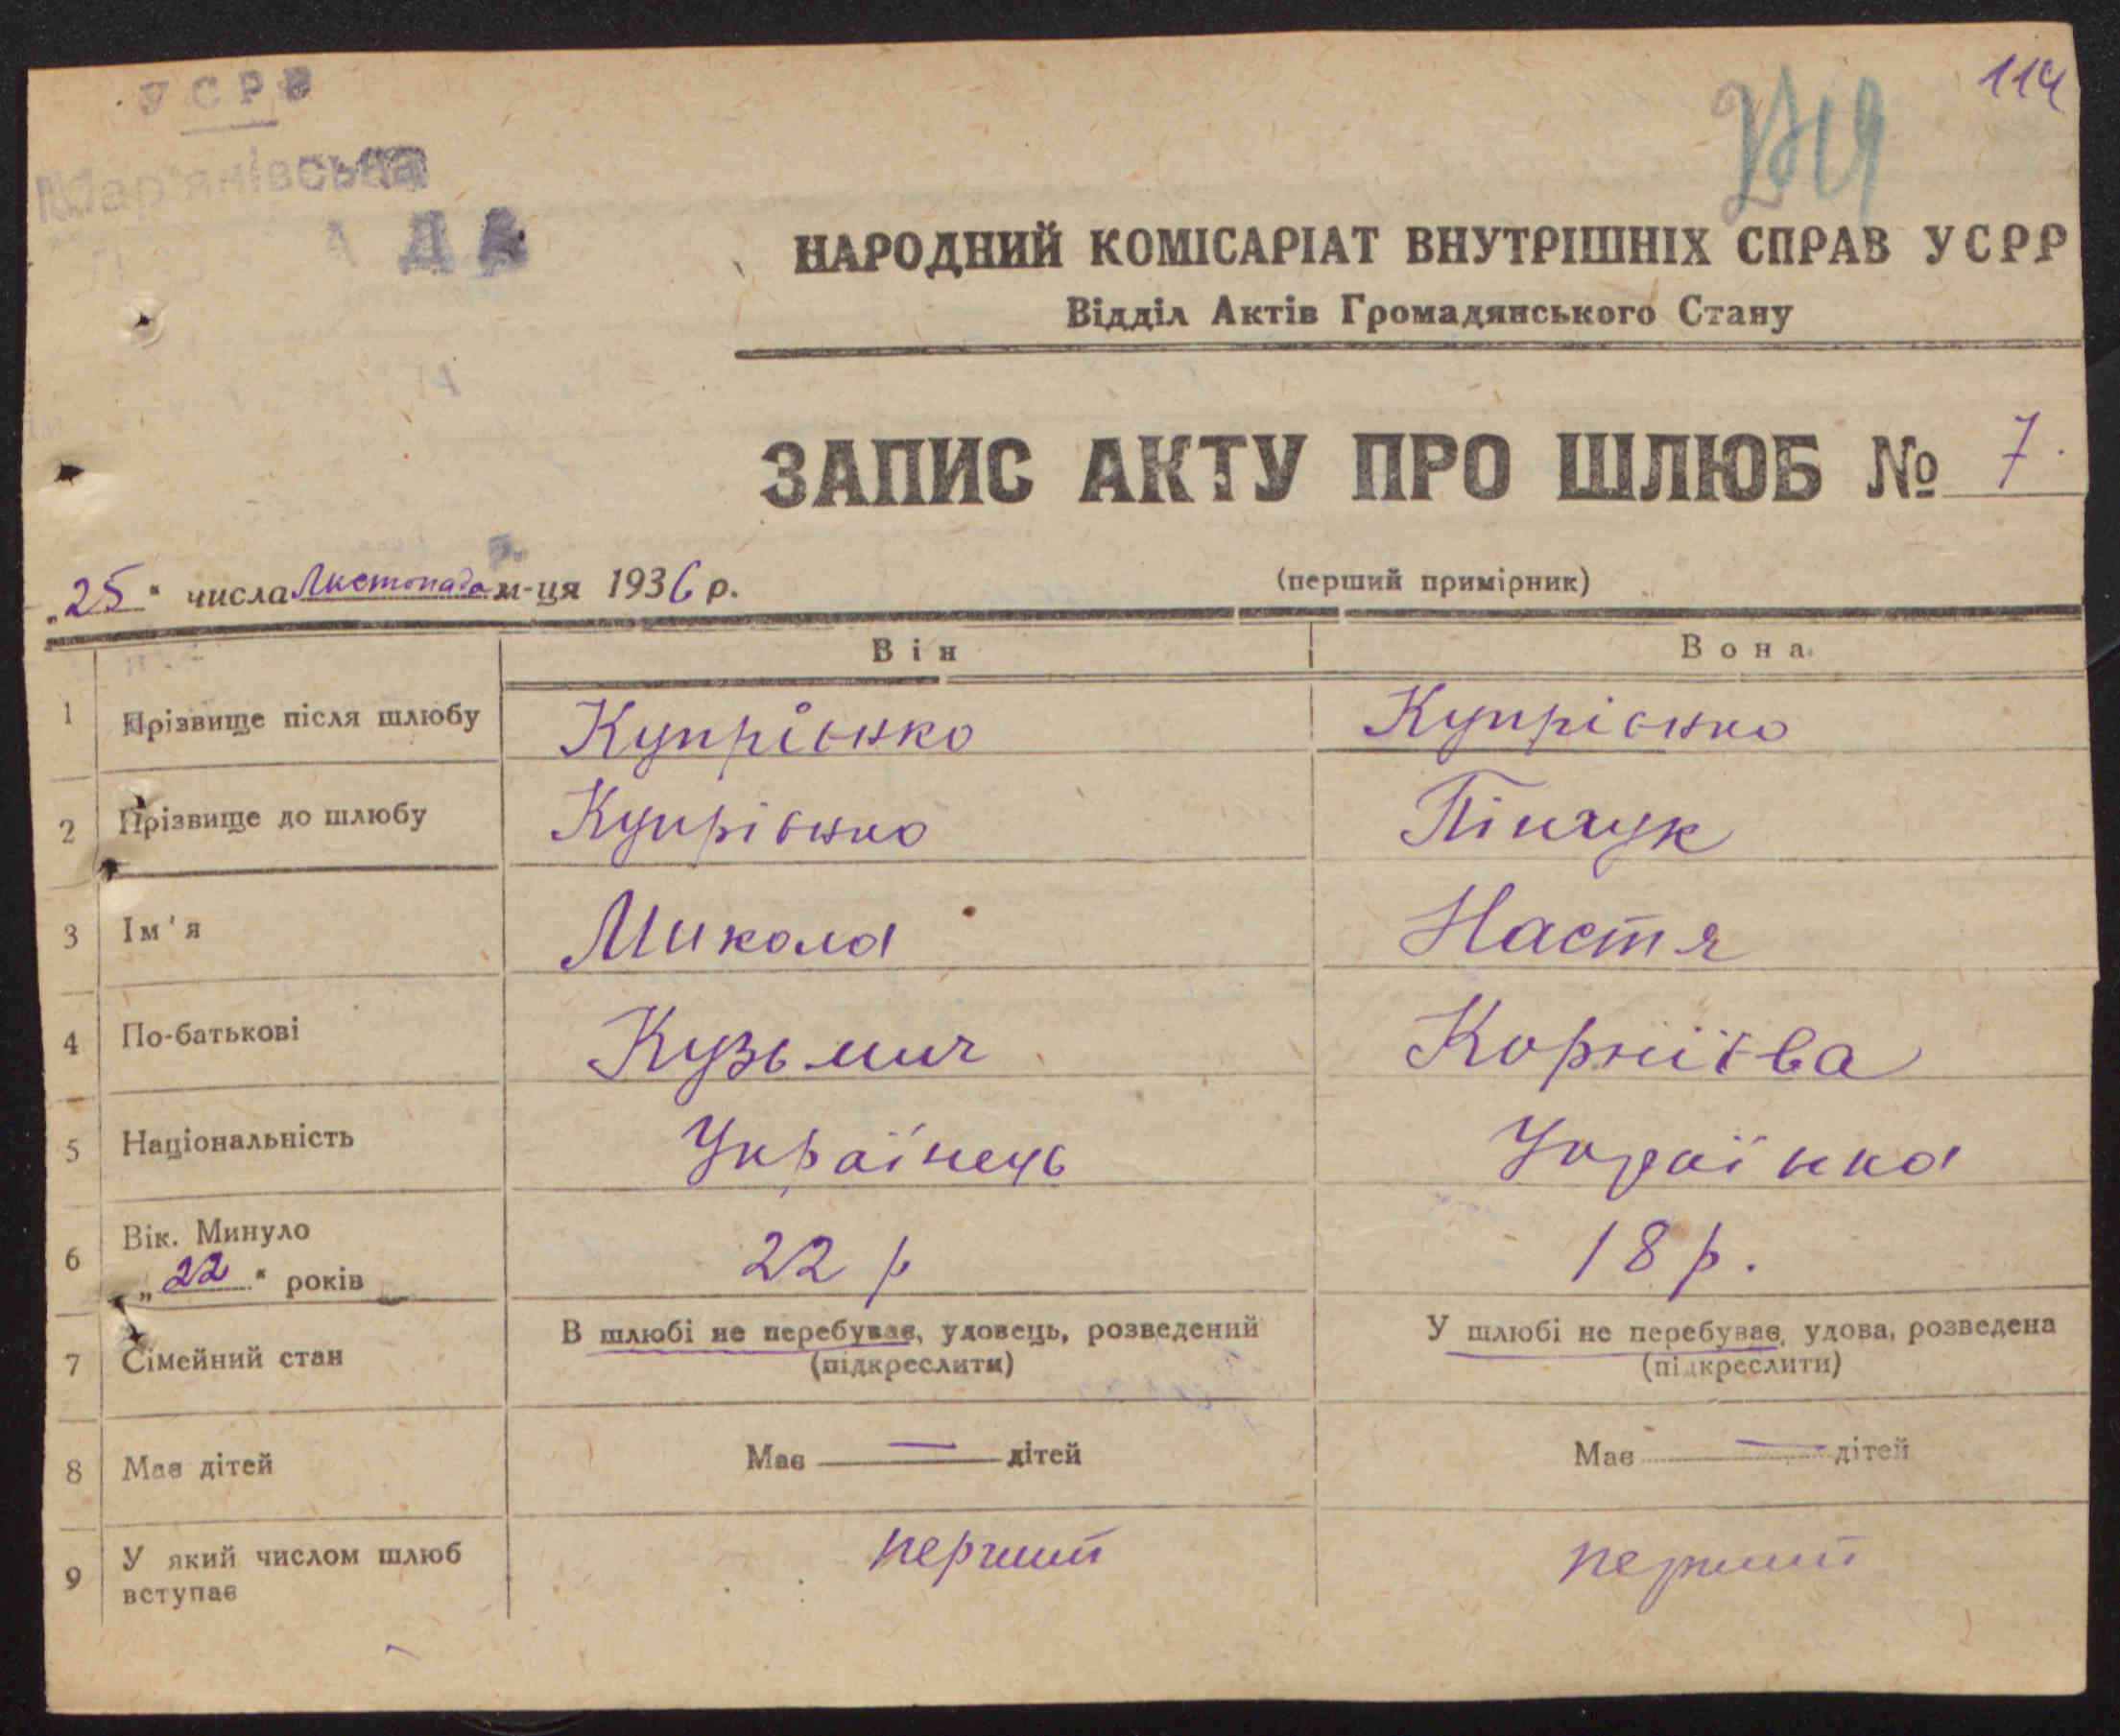 УСРР
114
Мар'янівська
НАРОДНИЙ КОМІСАРІАТ ВНУТРІШНІХ СПРАВ УСРР
Відділ Актів Громадянського Стану
ЗАПИС АКТУ ПРО ШЛЮБ № 7.
„25“ числа Листопада м-ця 1936 р.
(перший примірник)
Він Вона
1 Прізвище після шлюбу Купрієнко Купрієнко
2 Прізвище до шлюбу Купрієнко Пінчук
3 Ім'я Микола Настя
4 По-батькові Кузьмич Корніївва
5 Національність Українець Українка
6 Вік. Минуло
„22“ років 22 р 18 р.
7 Сімейний стан В шлюбі не перебуває, удовець, розведений У шлюбі не перебуває, удова, розведена
(підкреслити) (підкреслити)
8 Має дітей Має — дітей Має — дітей
9 У який числом шлюб
вступає перший перший